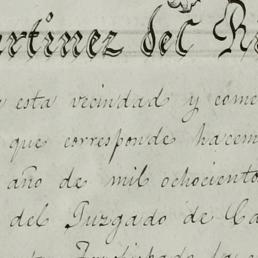 artinez del Ri
esta vecindad y come
que corresponde hacem
año de mil ochociento
del Juzgado de Ca